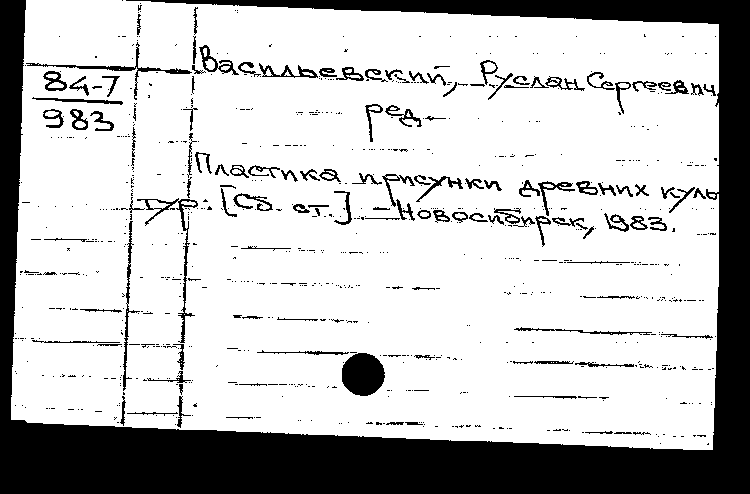 84-7
983
Васильевский, Руслан Сергеевич,
ред.
Пластика и рисунки древних куль
тур: [Сб. ст.] - Новосибирск, 1983.